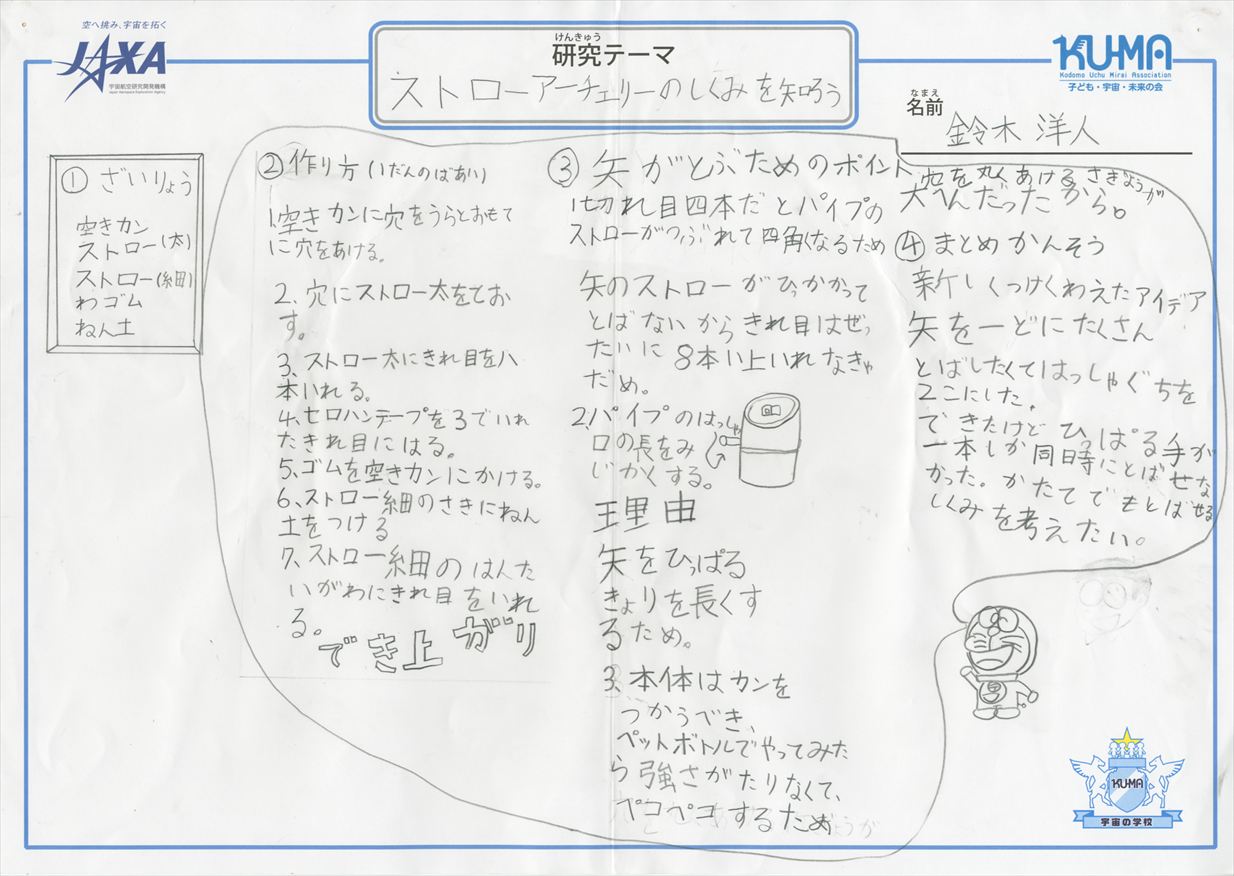 空へ挑み、宇宙を拓く
JAXA
宇宙航空研究開発機構
Japan Aerospace Exploration Agency
けんきゅう
研究テーマ
ストローアーチェリーのしくみを知ろう
KU-MA
Kodomo Uchu Mirai Association
子ども・宇宙・未来の会
なまえ
名前
鈴木 洋人
① ざいりょう
空きカン
ストロー(太)
ストロー(細)
わゴム
ねん土
② 作り方(いだんのばあい)
1.空きカンに穴をうらとおもて
に穴をあける。
2、穴にストロー太をとお
す。
3、ストロー太にきれ目を八
本いれる。
4、セロハンテープを3でいれ
たきれ目にはる。
5、ゴムを空きカンにかける。
6、ストロー細のさきにねん
土をつける
7、ストロー細のはんた
いがわにきれ目をいれ
る。
でき上がり
③ 矢がとぶためのポイント
1切れ目四本だとパイプの
ストローがつぶれて四角くなるため
矢のストローがひっかかって
とばないからきれ目はぜっ
たいに8本い上いれなきゃ
だめ。
2パイプのはっしゃ
口の長をみ
じかくする。
理由
矢をひっぱる
きょりを長くす
るため。
3、本体はカンを
つかうべき、
ペットボトルでやってみた
ら強さがたりなくて、
ペコペコするため
穴を丸くあけるさぎょうが
大へんだったから。
④ まとめかんそう
新しくつけくわえたアイデア
矢を一どにたくさん
とばしたくてはっしゃぐちを
2こにした。
できたけどひっぱる手が
一本しか同時にとばせな
かった。かたてでもとばせる
しくみを考えたい。
KU-MA
宇宙の学校